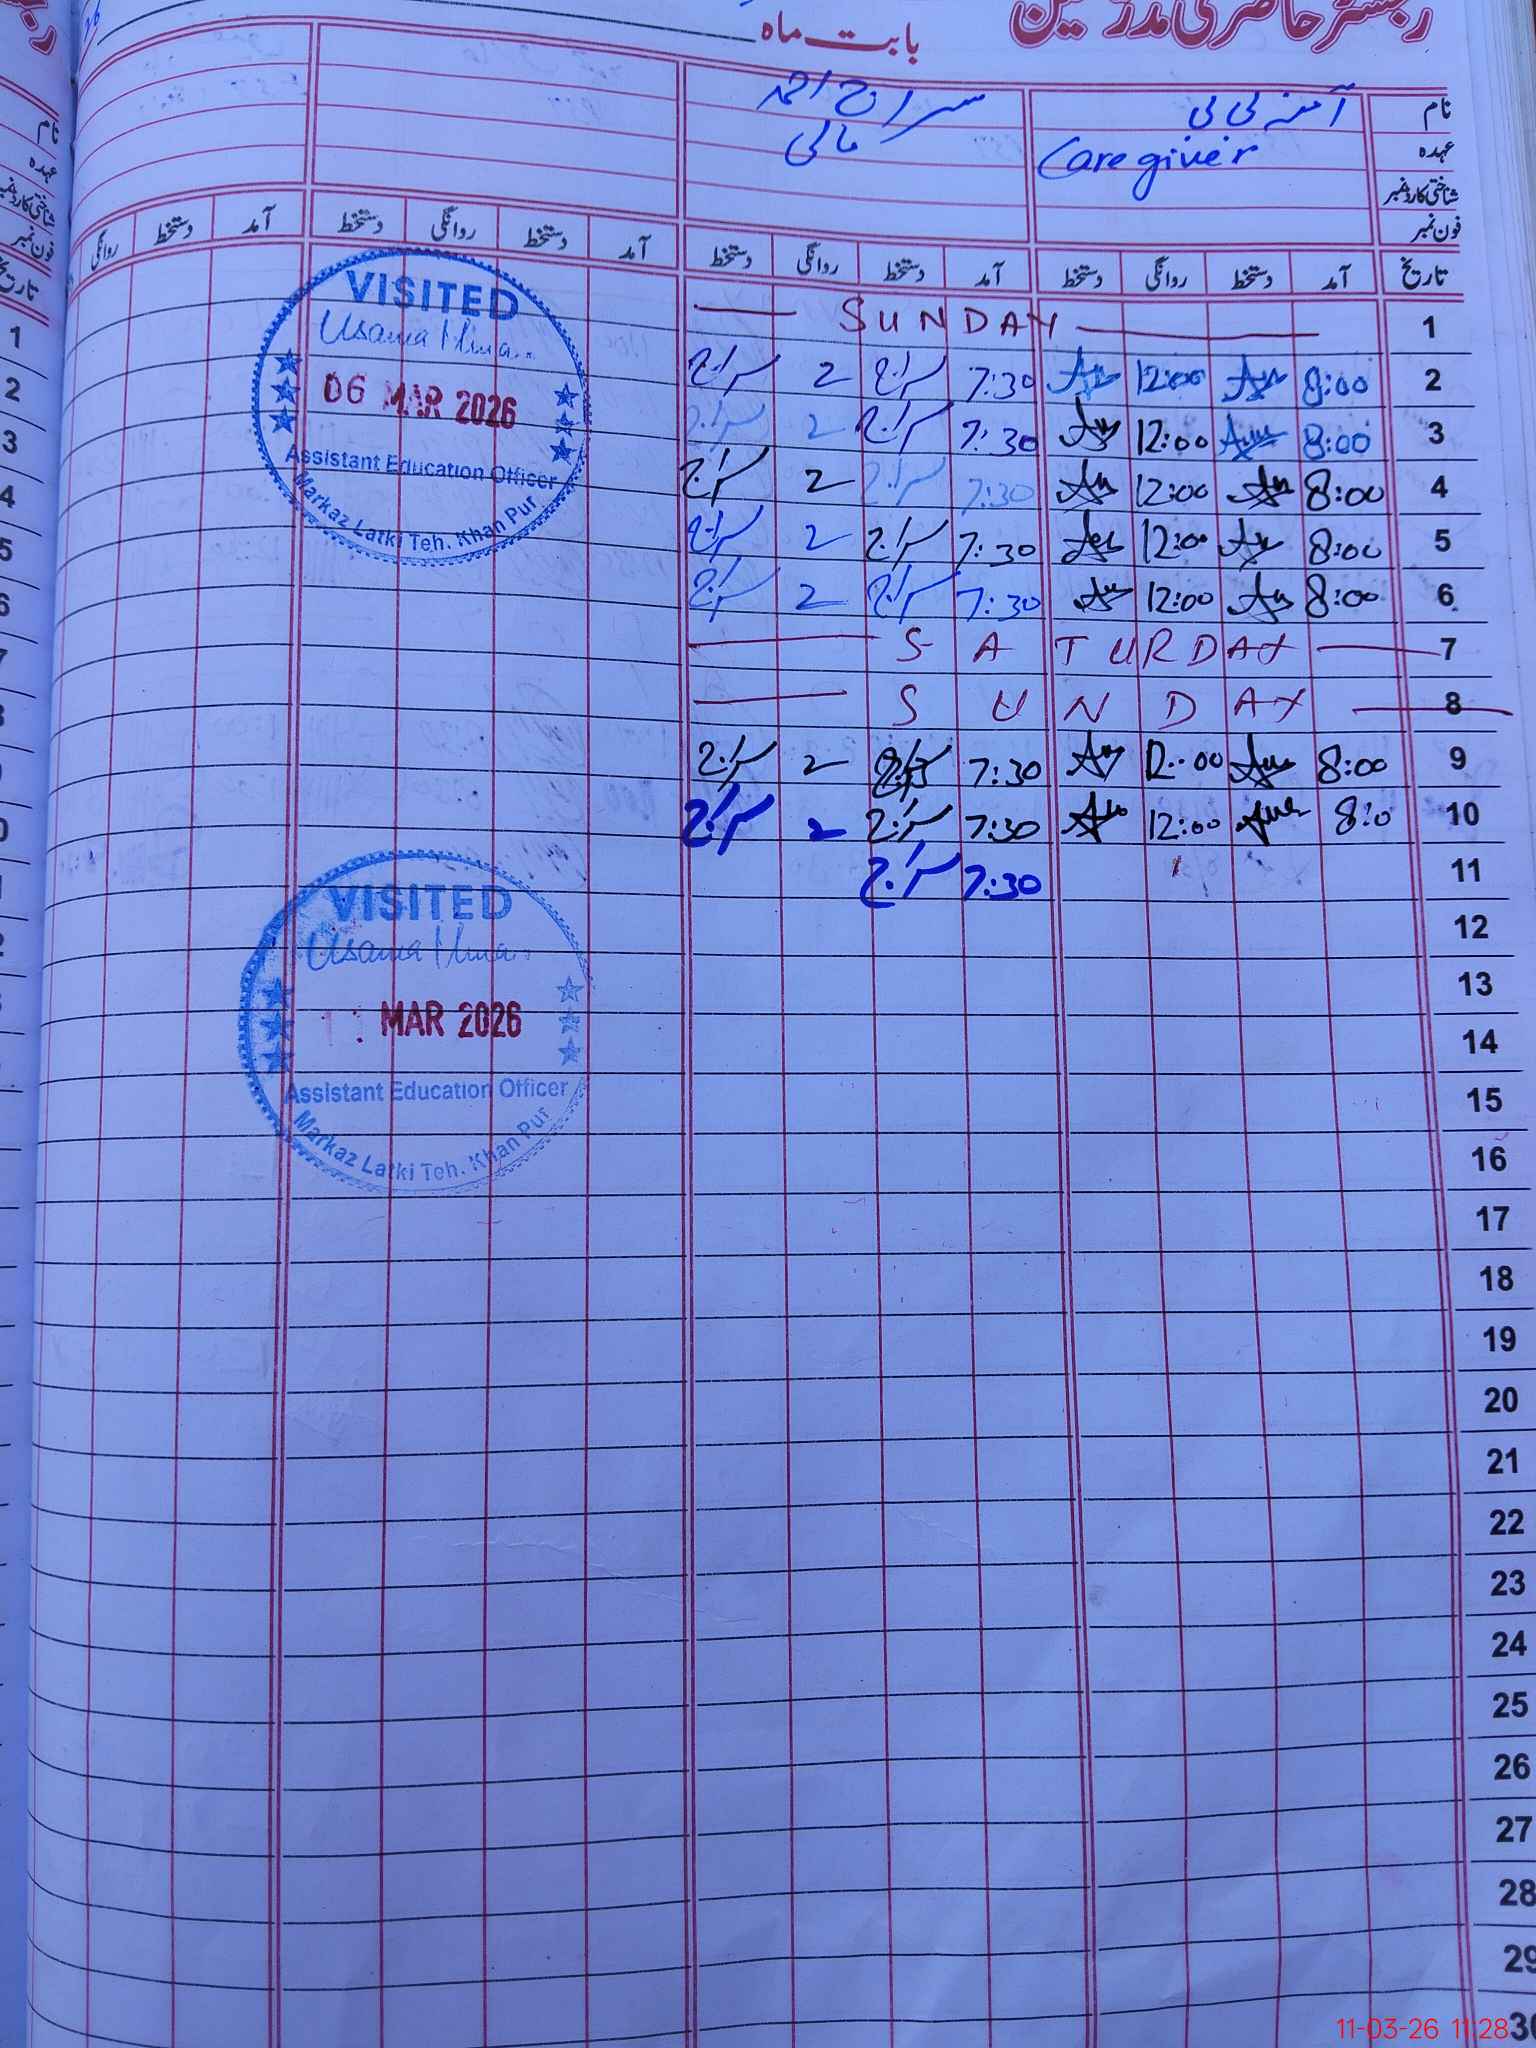 رجسٹر حاضری مدرسین
بابت ماہ
نام آمنہ بی بی سراج احمد
عہدہ Caregiver مالی
شناختی کارڈ نمبر
فون نمبر
تاریخ آمد دستخط روانگی دستخط آمد دستخط روانگی دستخط آمد دستخط روانگی دستخط آمد دستخط روانگی
1 SUNDAY
2 8:00 12:00 7:30 سراج 2 سراج
3 8:00 12:00 7:30 سراج 2 سراج
4 8:00 12:00 7:30 سراج 2 سراج
5 8:00 12:00 7:30 سراج 2 سراج
6 8:00 12:00 7:30 سراج 2 سراج
7 SATURDAY
8 SUNDAY
9 8:00 12:00 7:30 سراج 2 سراج
10 8:0 12:00 7:30 سراج 2 سراج
11 7:30 سراج
12
13
14
15
16
17
18
19
20
21
22
23
24
25
26
27
28
29
30
VISITED
Usama
06 MAR 2026
Assistant Education Officer
Markaz Latki Teh. Khan Pur
VISITED
Usama
11 MAR 2026
Assistant Education Officer
Markaz Latki Teh. Khan Pur
نام
عہدہ
شناختی کارڈ نمبر
فون نمبر
تاریخ
1
2
3
4
5
6
11-03-26 11:28